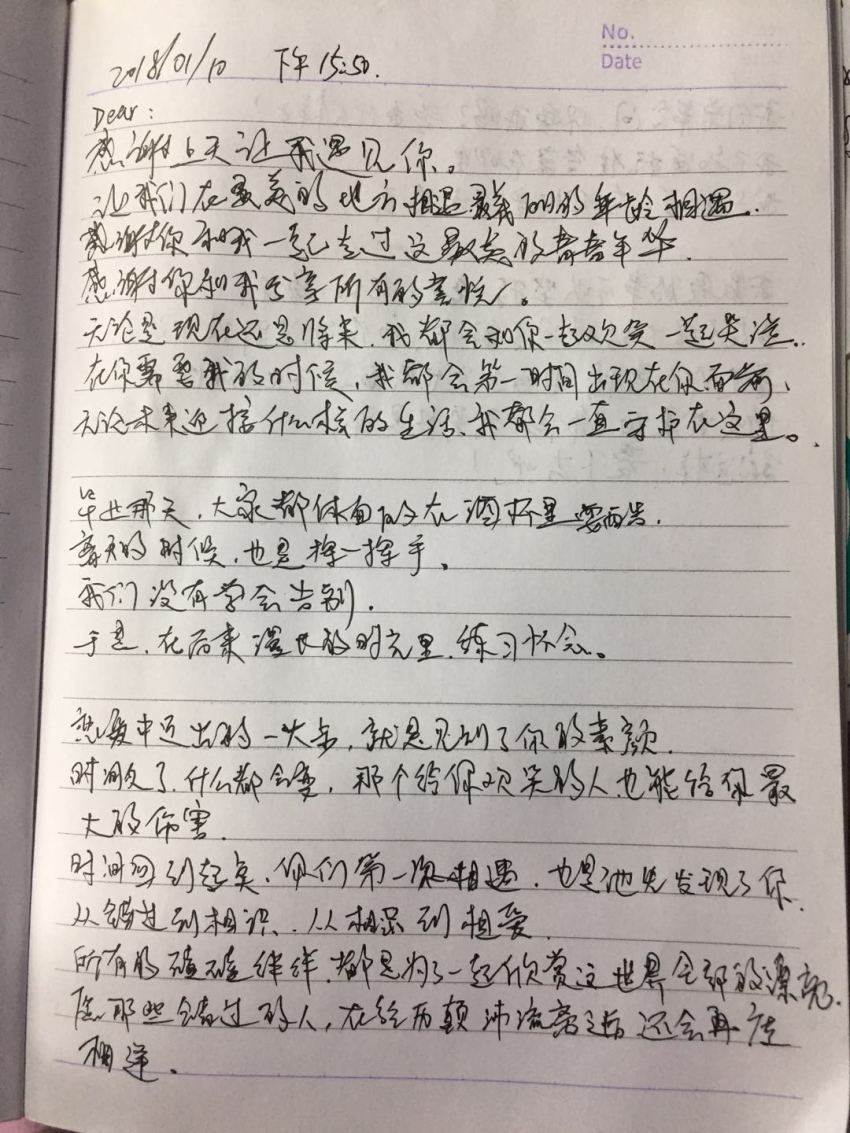 No.
Date
2018/01/10 下午15:50.
Dear:
感谢上天让我遇见你。
让我们在最美的地方相遇最美丽的年龄相遇.
感谢你和我一起走过这最美的青春年华.
感谢你和我分享所有的喜悦。
无论是现在还是将来,我都会和你一起欢笑一起哭泣..
在你需要我的时候,我都会第一时间出现在你面前、
无论未来迎接什么样的生活、我都会一直守护在这里。
毕业那天,大家都体面的在酒杯里
离别的时候,也是挥一挥手、
我们没有学会告别.
于是.在后来漫长的时光里.练习怀念。
恋爱中迈出的一大步,就是见到了你的素颜.
时间久了.什么都会变,那个给你欢笑的人也能给你最
大的伤害.
时间回到起点、你们第一次相遇.也是他先发现了你.
从错过到相识、从相识到相爱.
所有的磕磕绊绊.都是为了一起欣赏这世界全部的漂亮.
愿那些错过的人,在经历颠沛流离之后还会再度
相逢.